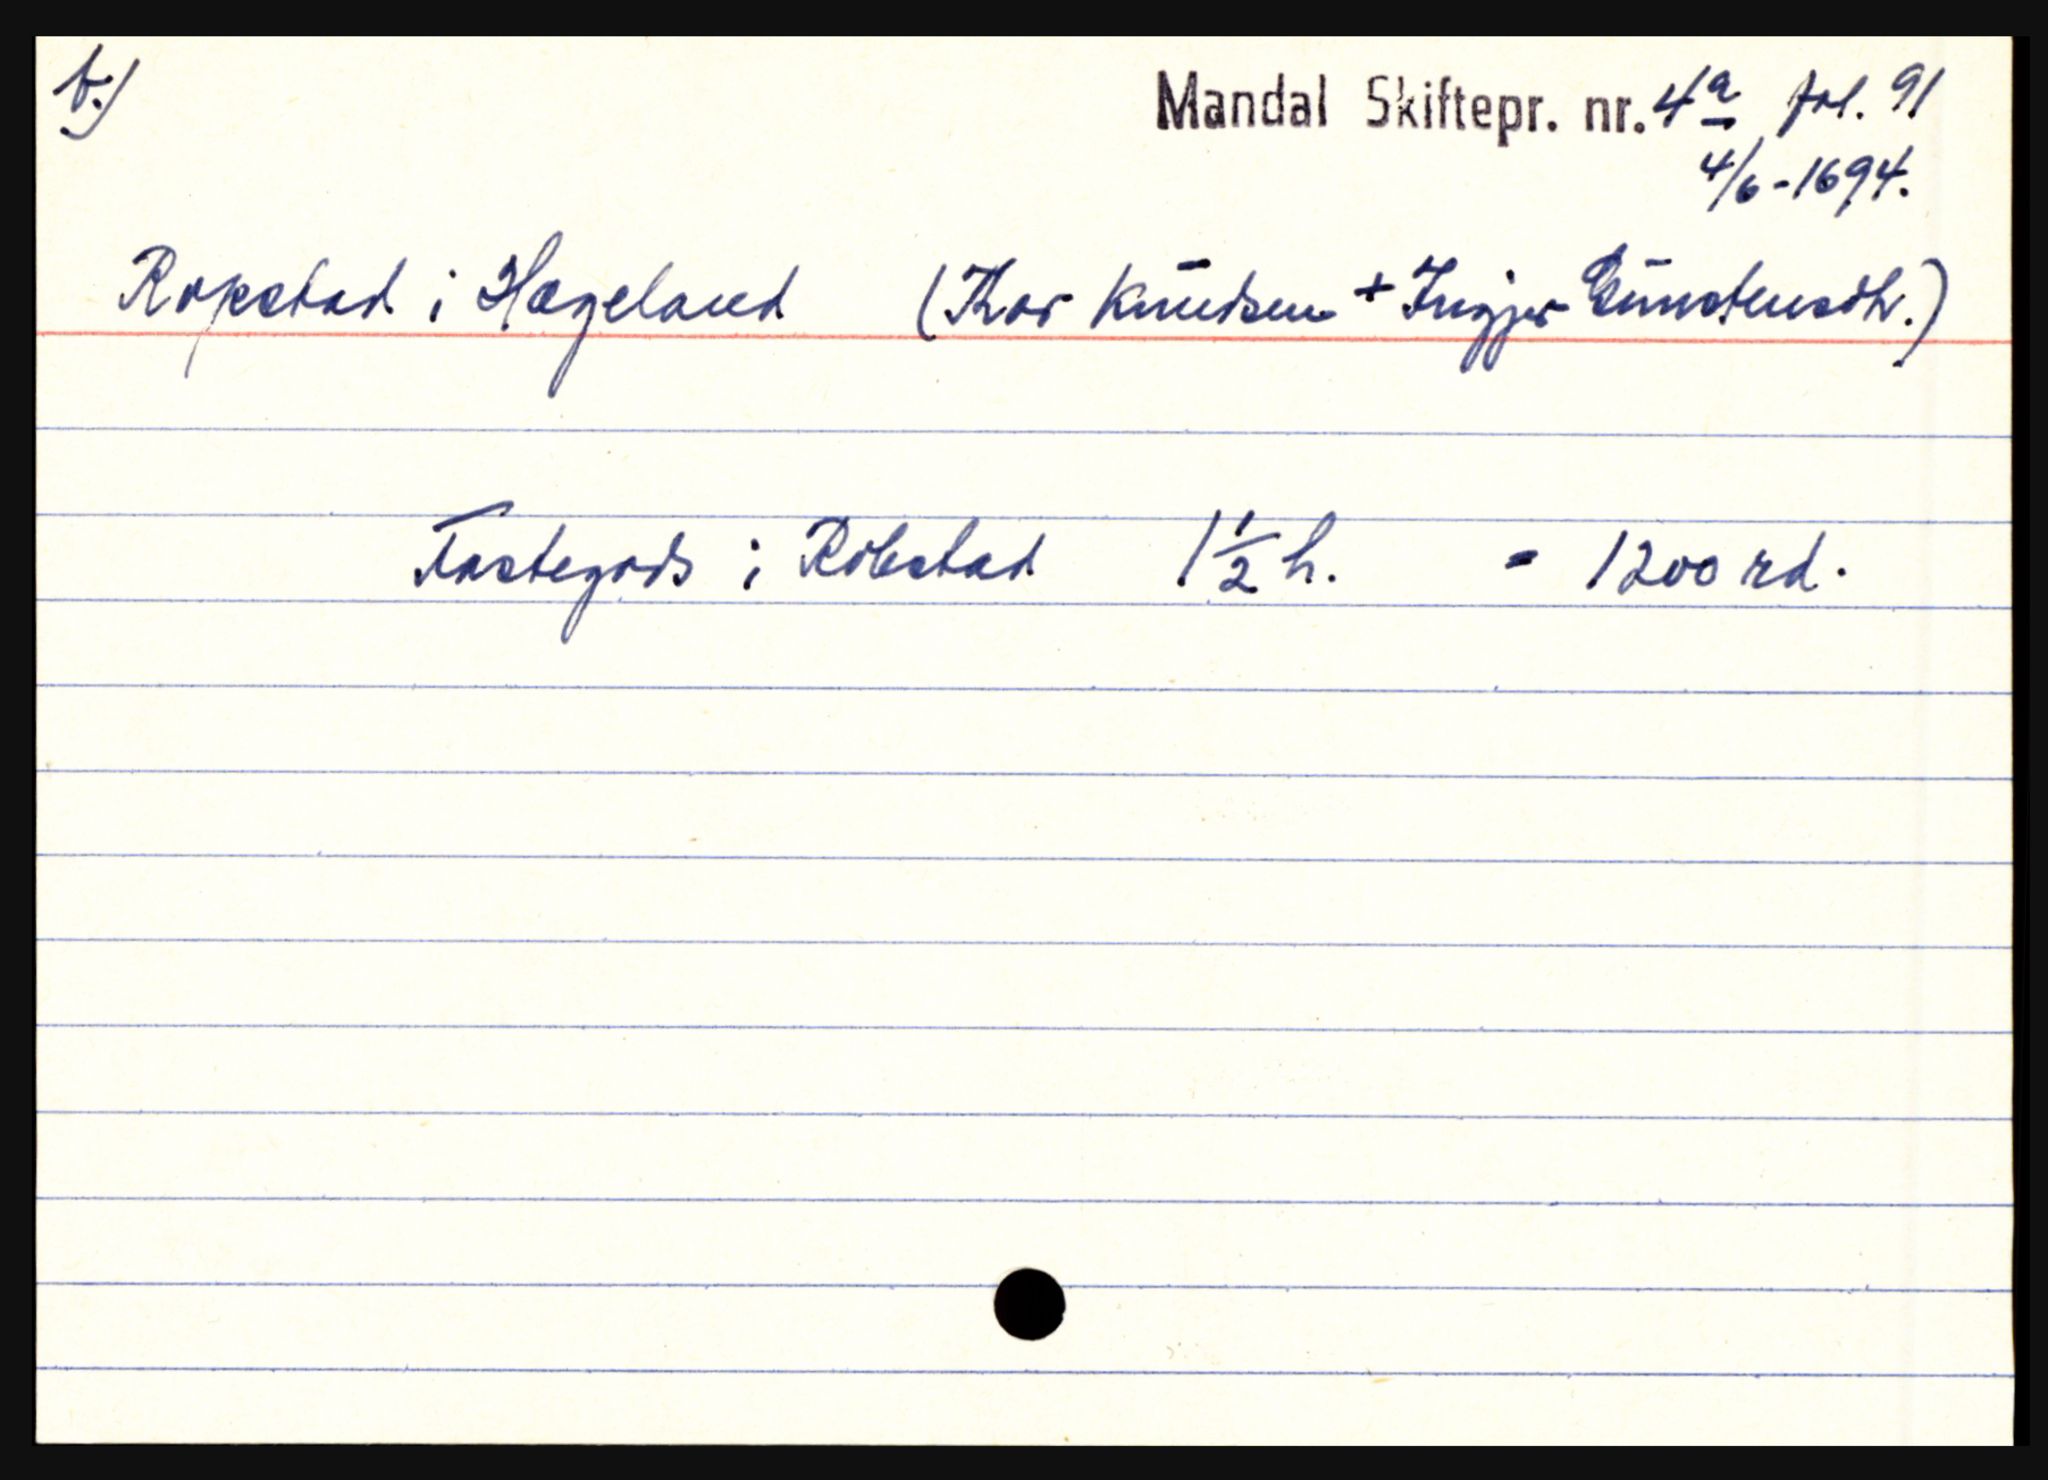 b.)
Mandal Skiftepr. nr. 4a fol. 91
4/6-1694.
Ropstad i Hægeland (Thor Knudsen + Ingjer Gunstensdtr.)
Fastegods i Robstad 1 1/2 h. = 1200 rd.